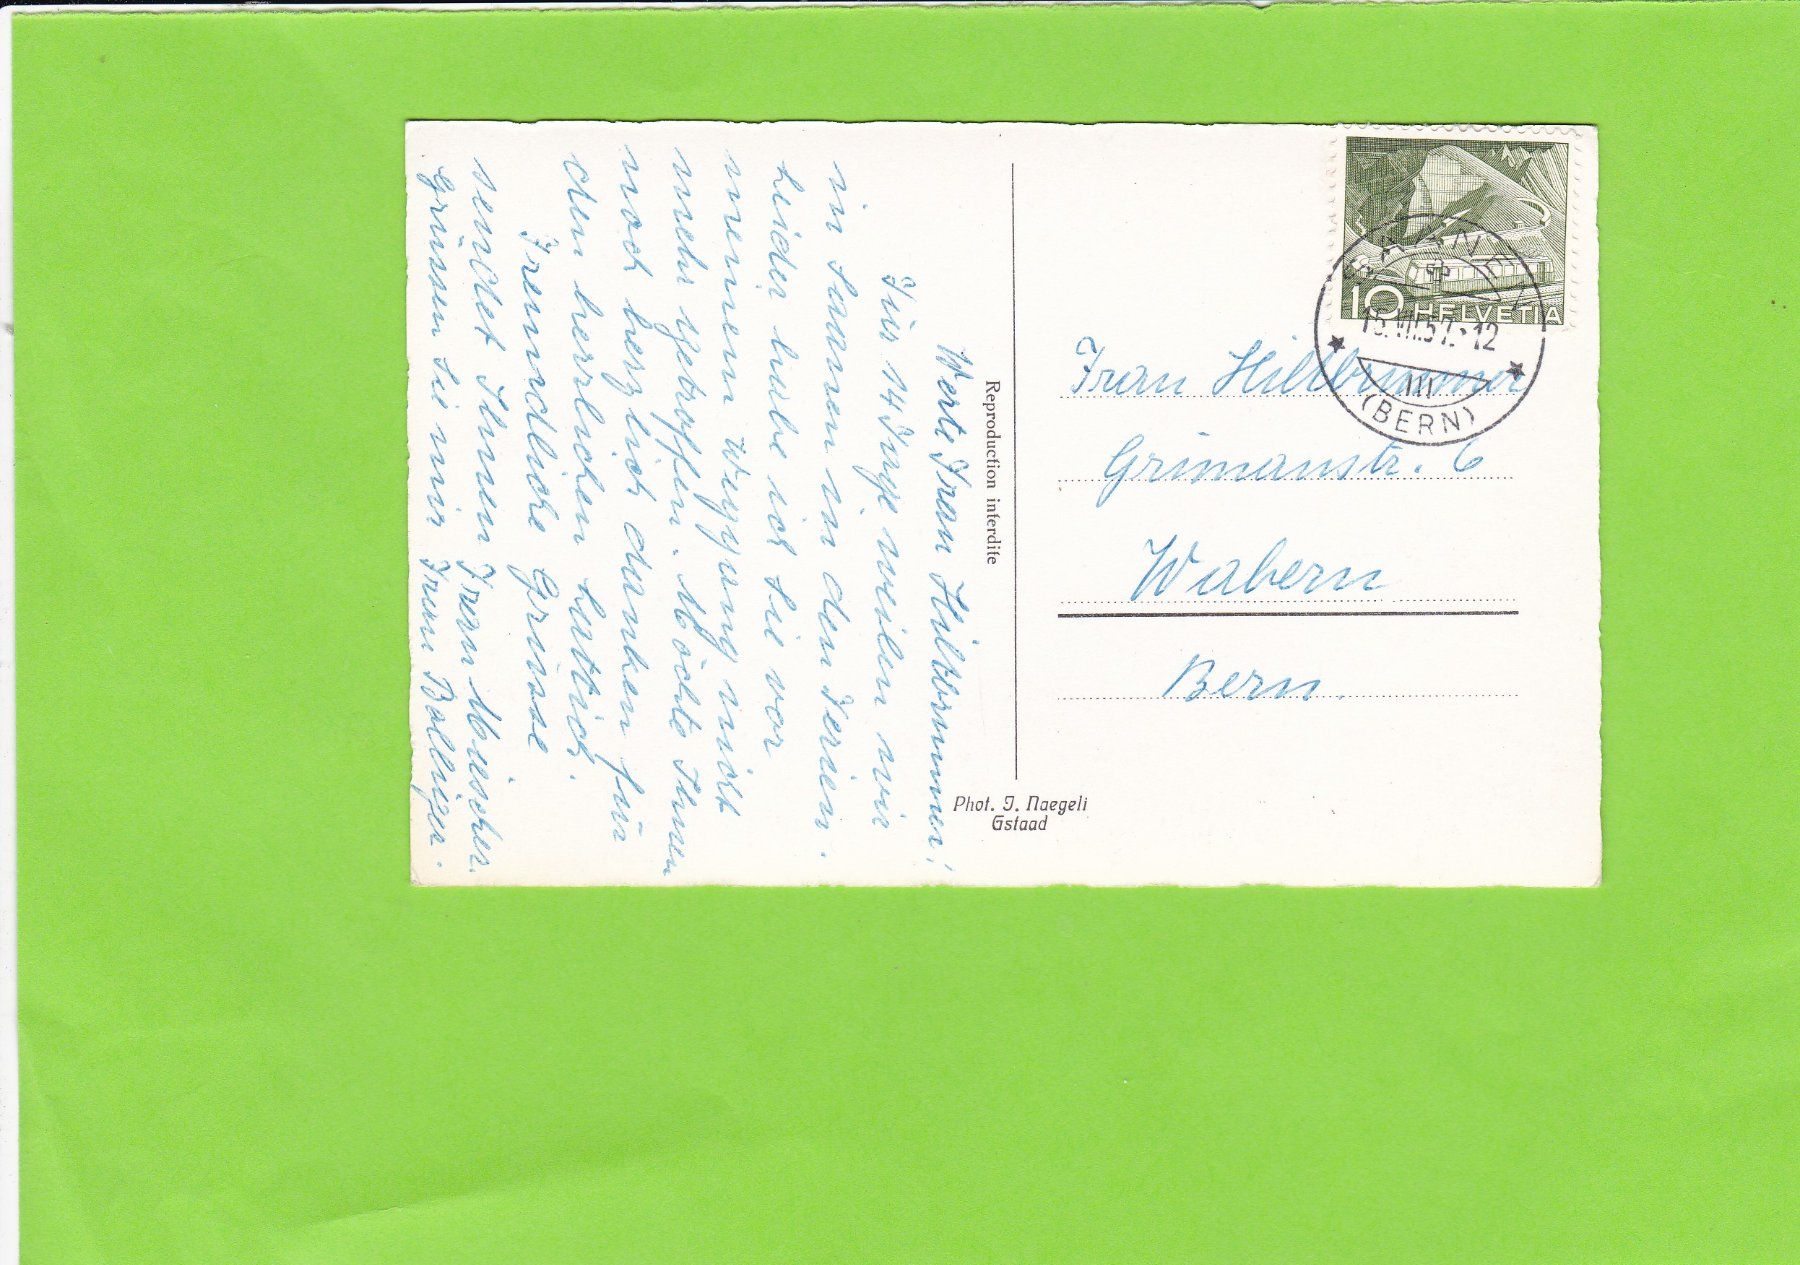 Werte Frau Hiltbrunner!
Für 14 Tage weilen wir
in Saanen in den Ferien.
Leider habe ich Sie vor
meinem Weggang nicht
mehr getroffen. Möchte Ihnen
noch herzlich danken für
den herrlichen Lattich.
Freundliche Grüsse
sendet Ihnen Frau
Grüssen Sie mir Frau Bolliger.
Reproduction interdite
Phot. J. Naegeli
Gstaad
10 HELVETIA
SAANEN
15.VII.57.-12
III
(BERN)
Frau Hiltbrunner
Grünaustr. 6
Wabern
Bern.